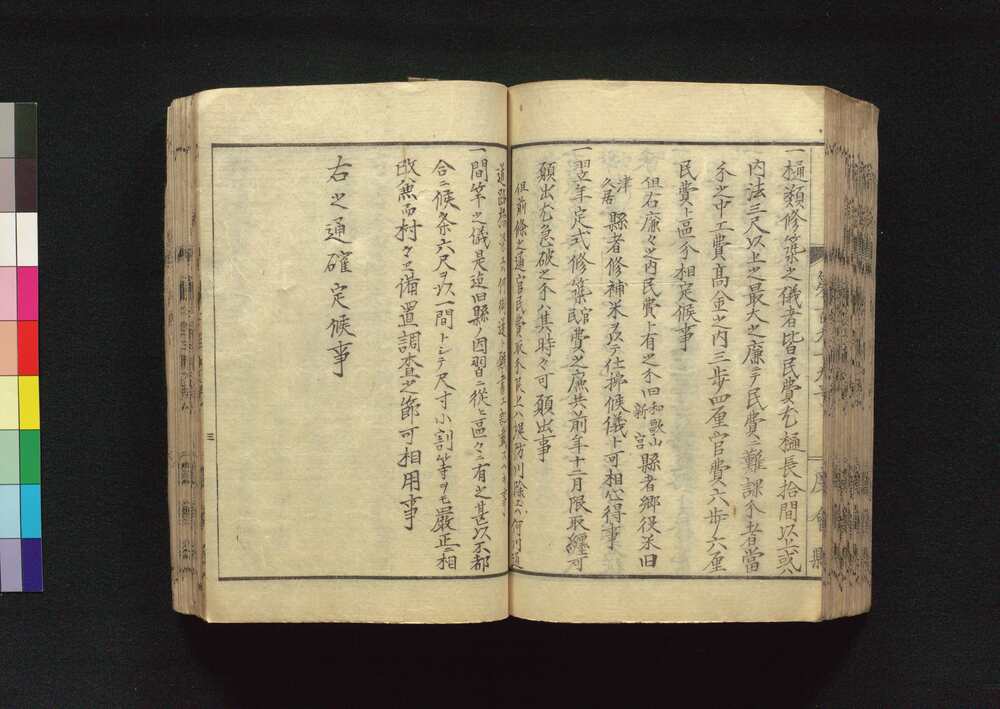 一樋類修築之儀者皆民費尤樋長拾間以上或ハ
内法三尺以上之最大之廉ニテ民費ニ難課分者當
分之中工費高金之内三歩四厘官費六歩六厘
民費ト區分相定候事
但右廉々之内民費ト有之分旧和歌山新宮縣者郷役米旧
津久居縣者修補米ヲ以テ仕拂候儀ト可相心得事
一翌年定式修築官民費之廉共前年十二月限取纏可
願出尤急破之分ハ其時々可願出事
但前條之通官民費取分
一間竿之儀是迄旧縣ノ因習ニ從ヒ區々ニ有之甚以不都
合ニ候条六尺ヲ以一間トシテ尺寸小割等ヲモ嚴正ニ相
改兼而村々ニ備置調査之節可相用事
右之通確定候事
三
度會縣